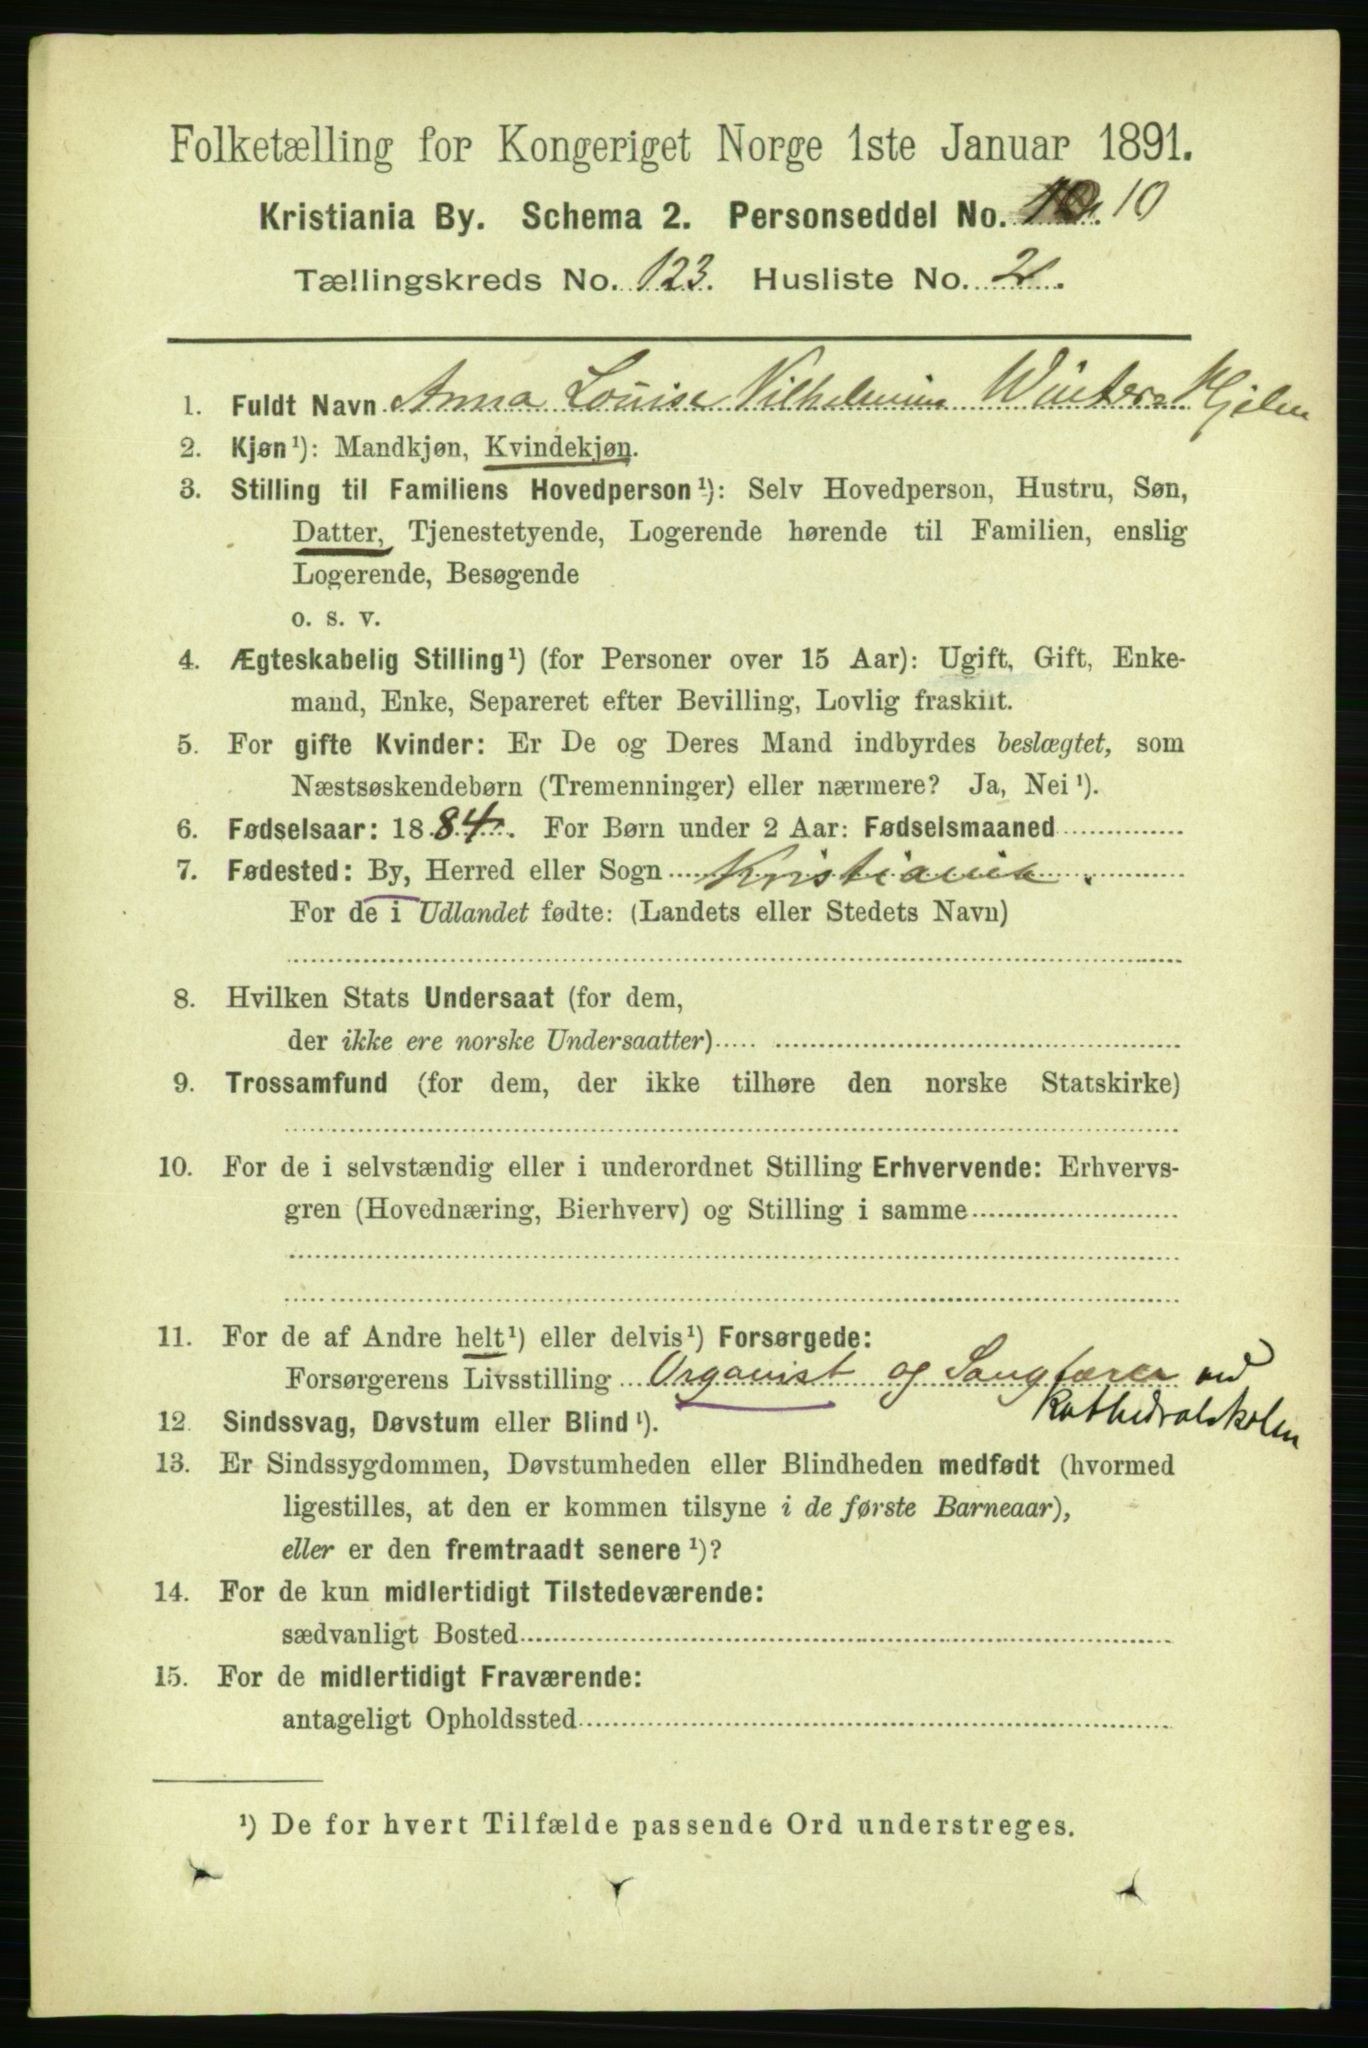 Folketælling for Kongeriget Norge 1ste Januar 1891.
Kristiania By. Schema 2. Personseddel No. 10
Tællingskreds No. 123. Husliste No. 21.
1. Fuldt Navn Anna Louise Vilhelmine Winter-Hjelm
2. Kjøn¹): Mandkjøn, Kvindekjøn.
3. Stilling til Familiens Hovedperson¹): Selv Hovedperson, Hustru, Søn,
Datter, Tjenestetyende, Logerende hørende til Familien, enslig
Logerende, Besøgende
o. s. v.
4. Ægteskabelig Stilling¹) (for Personer over 15 Aar): Ugift, Gift, Enke-
mand, Enke, Separeret efter Bevilling, Lovlig fraskilt.
5. For gifte Kvinder: Er De og Deres Mand indbyrdes beslægtet, som
Næstsøskendebørn (Tremenninger) eller nærmere? Ja, Nei¹).
6. Fødselsaar: 1884. For Børn under 2 Aar: Fødselsmaaned
7. Fødested: By, Herred eller Sogn Kristiania.
For de i Udlandet fødte: (Landets eller Stedets Navn)
8. Hvilken Stats Undersaat (for dem,
der ikke ere norske Undersaatter)
9. Trossamfund (for dem, der ikke tilhøre den norske Statskirke)
10. For de i selvstændig eller i underordnet Stilling Erhvervende: Erhvervs-
gren (Hovednæring, Bierhverv) og Stilling i samme
11. For de af Andre helt¹) eller delvis¹) Forsørgede:
Forsørgerens Livsstilling Organist og Sanglærer ved
Kathedralskolen
12. Sindssvag, Døvstum eller Blind¹).
13. Er Sindssygdommen, Døvstumheden eller Blindheden medfødt (hvormed
ligestilles, at den er kommen tilsyne i de første Barneaar),
eller er den fremtraadt senere¹)?
14. For de kun midlertidigt Tilstedeværende:
sædvanligt Bosted
15. For de midlertidigt Fraværende:
antageligt Opholdssted
¹) De for hvert Tilfælde passende Ord understreges.